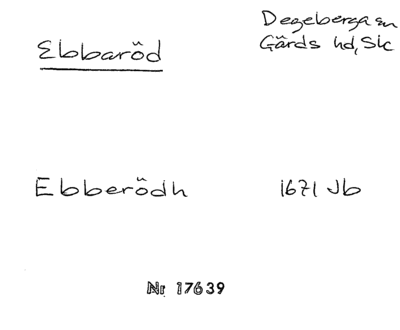 Ebbaröd
Degeberga sn
Gärds hd, Sk
Ebberödh 1671 Jb
Nr 17639